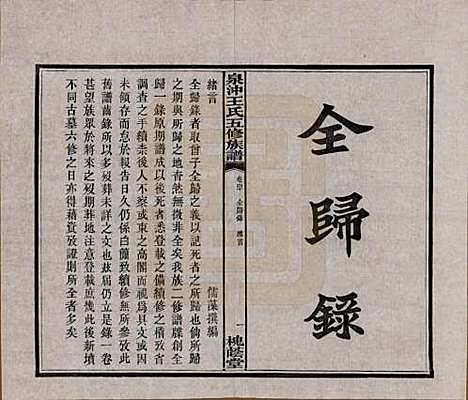 全歸錄
泉沖王氏五修族譜
卷首 全歸錄 緒言
一
槐蔭堂
緒言
儒藻撰編
全歸錄者取曾子全歸之義以記死者之所歸也倘所歸
之期與所歸之地杳然無徵非全矣我族二修譜牒創全
歸一錄原期譜成以後死者悉登載之備續修之稽實此
調查之手續奈後人不或束之高閣而視爲具文或當時
未領存而怠於報告日久仍係白簿致續修無所參攷此
舊譜齒錄所以多歿葬未詳之文也茲屆仍立是錄一卷
甚望族眾於將來之歿期葬地注意登載庶幾此後新墳
不同古墓六修之日亦得藉資攷證則所全者多矣